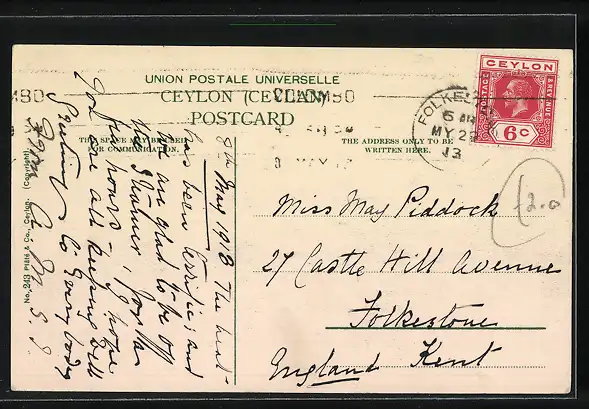 UNION POSTALE UNIVERSELLE
CEYLON (CEYLAN)
POSTCARD
THE SPACE MAY BE USED
FOR COMMUNICATION.
THE ADDRESS ONLY TO BE
WRITTEN HERE.
COLOMBO
FOLKES
5 AM
MY 22
13
CEYLON
POSTAGE
& REVENUE
6c
Miss May Piddock
27 Castle Hill Avenue
Folkestone
Kent
England
8th May 1913 The heat
has been terrific; and
we are glad to be off
the steamer for the
few hours. I hope
you are all keeping well
Greetings to Everybody
From
No. 243 Plâté & Co., Ceylon. (Copyright)